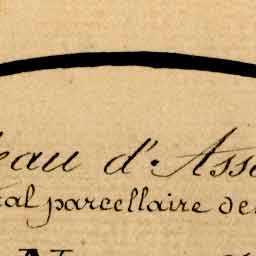 eau d'Ass
al parcellaire de